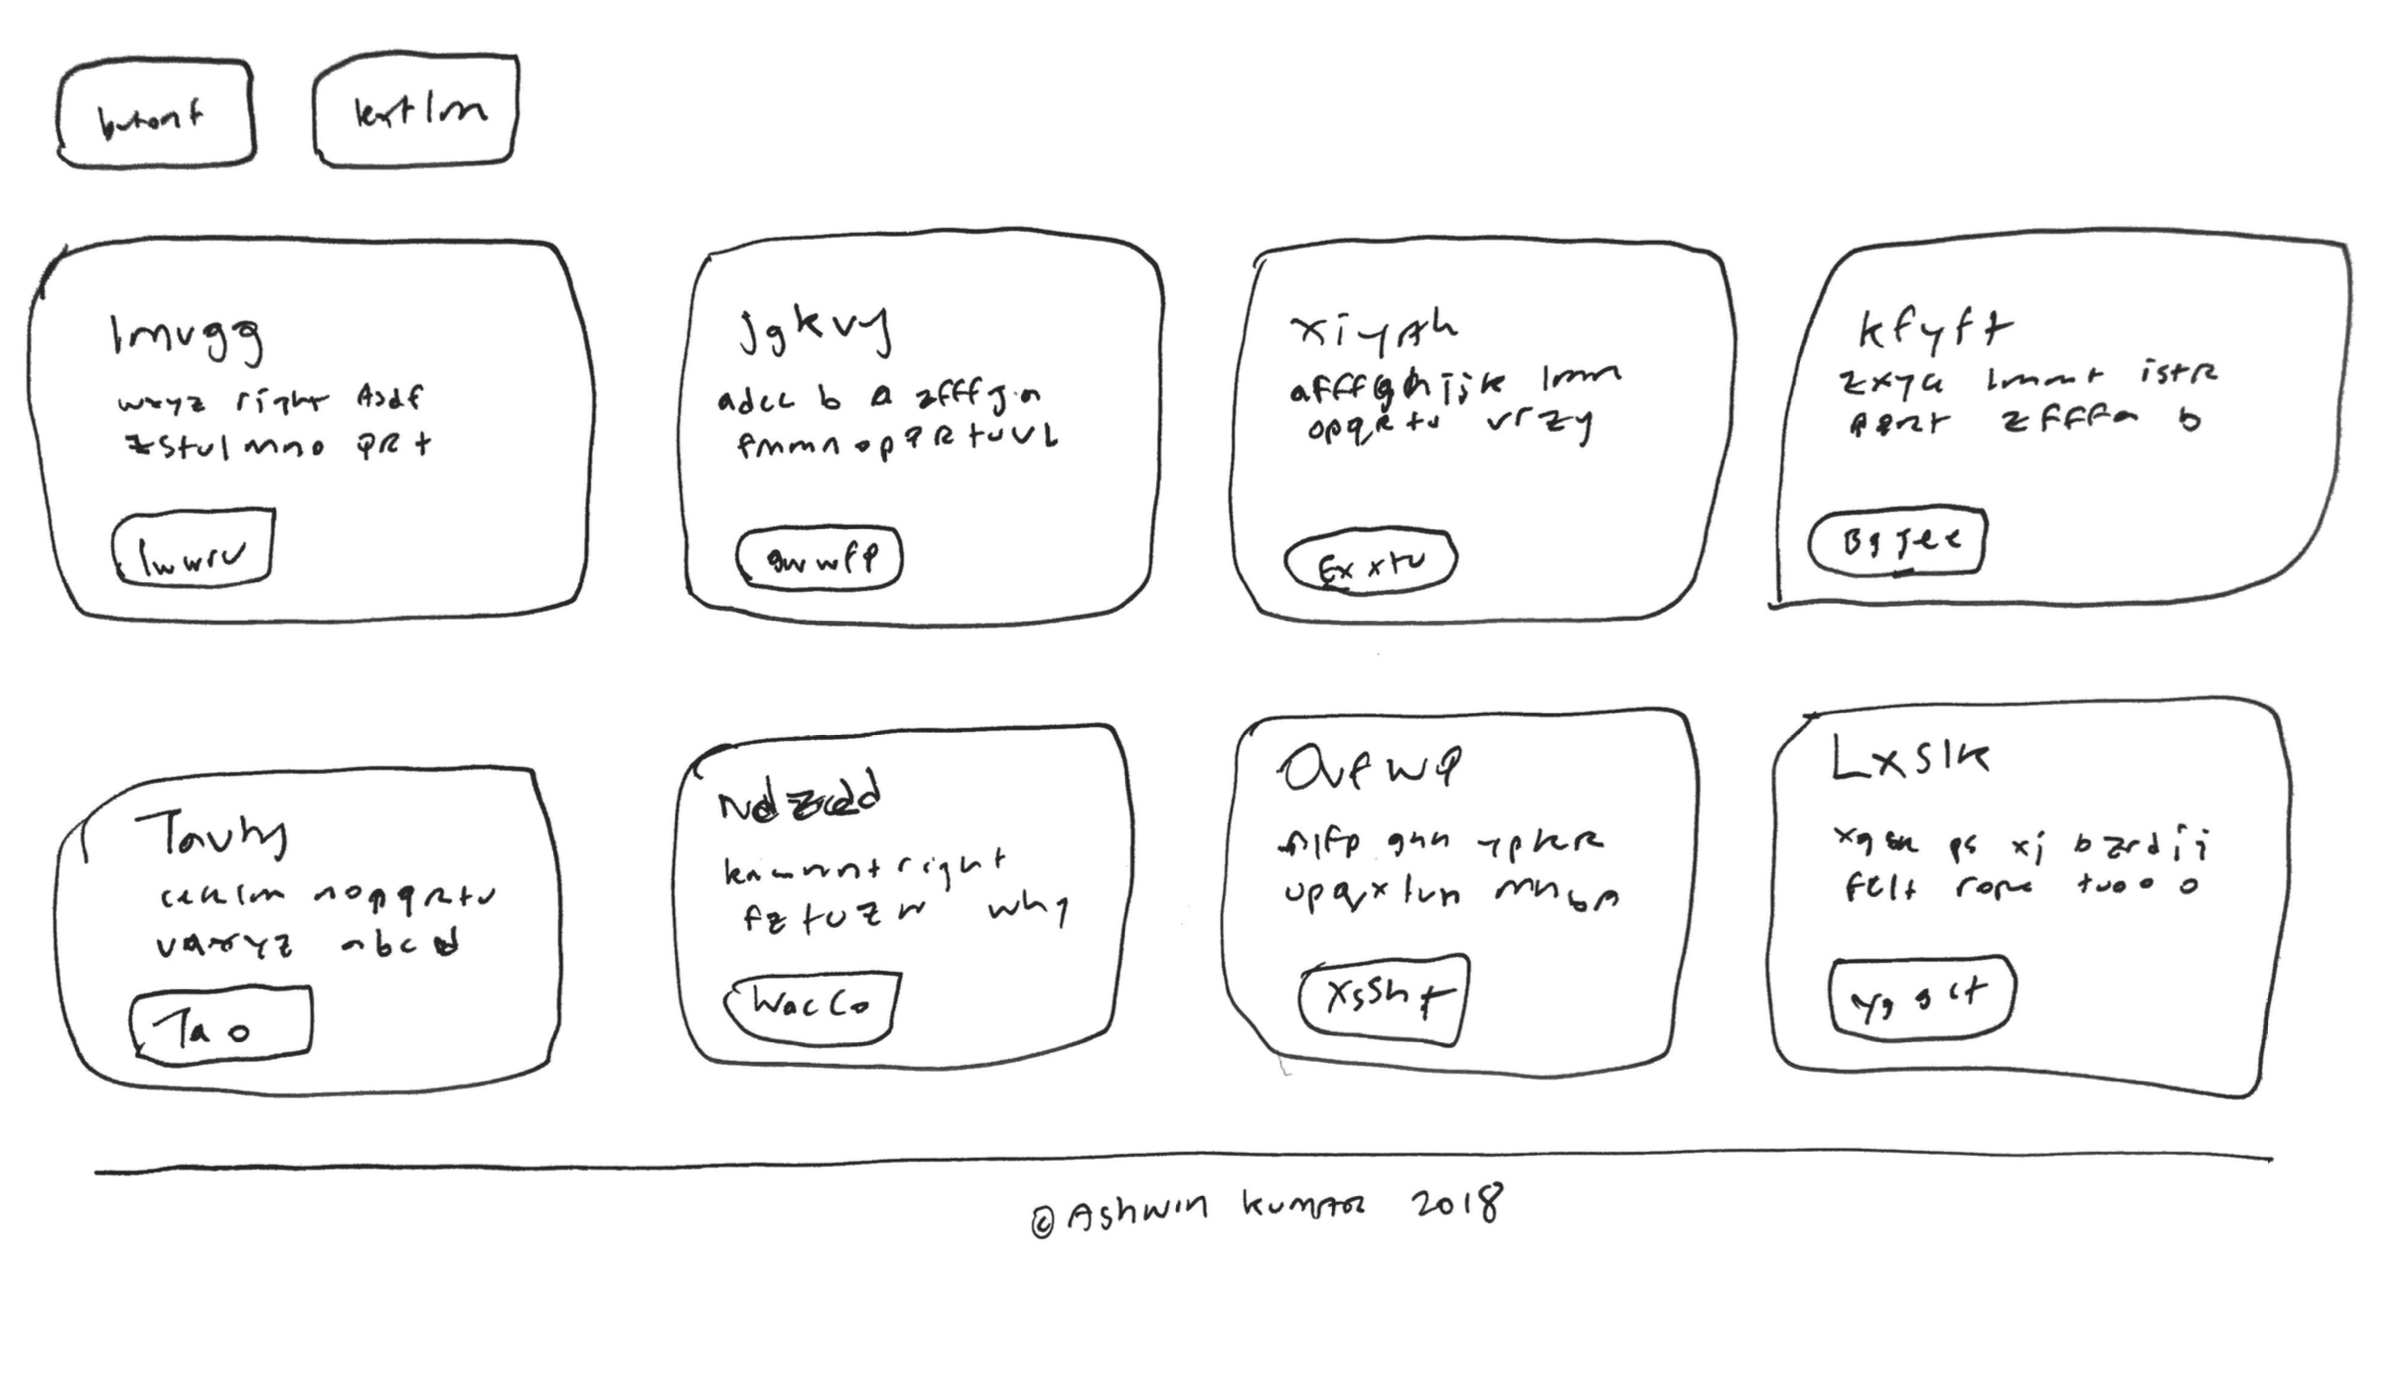 butonf
textlm
lmvgg
wxyz right Asdf
zstul mno QR t
lwwrv
jgkvy
adcc b a zfffg n
fmmn opqRtuvL
gwwfp
xiyAh
afffghijk lmm
opqrtu vrzy
Exxtv
kfyft
zxya lmmnt istR
zfffa b
Bgjee
Tavhy
lm nopqRtv
vaxyz abcd
Tao
Ndzcdd
right
fztuzw why
Wacco
Ovfwp
Alfp ghh ypkR
upqrxlvn mnba
Xssht
Lxslk
ps xj bzrdjj
felt rope tuoo o
yggct
©Ashwin Kumar 2018